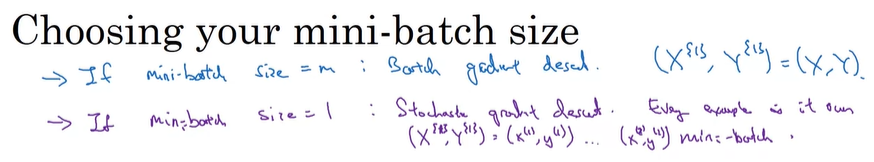 Choosing your mini-batch size
→ If mini-batch size = m : Batch gradient descent. (X^{1}, Y^{1}) = (X, Y).
→ If mini-batch size = 1 : Stochastic gradient descent. Every example is it own
(X^{1}, Y^{1}) = (x^(1), y^(1)) ... (x^(2), y^(2)) mini-batch.